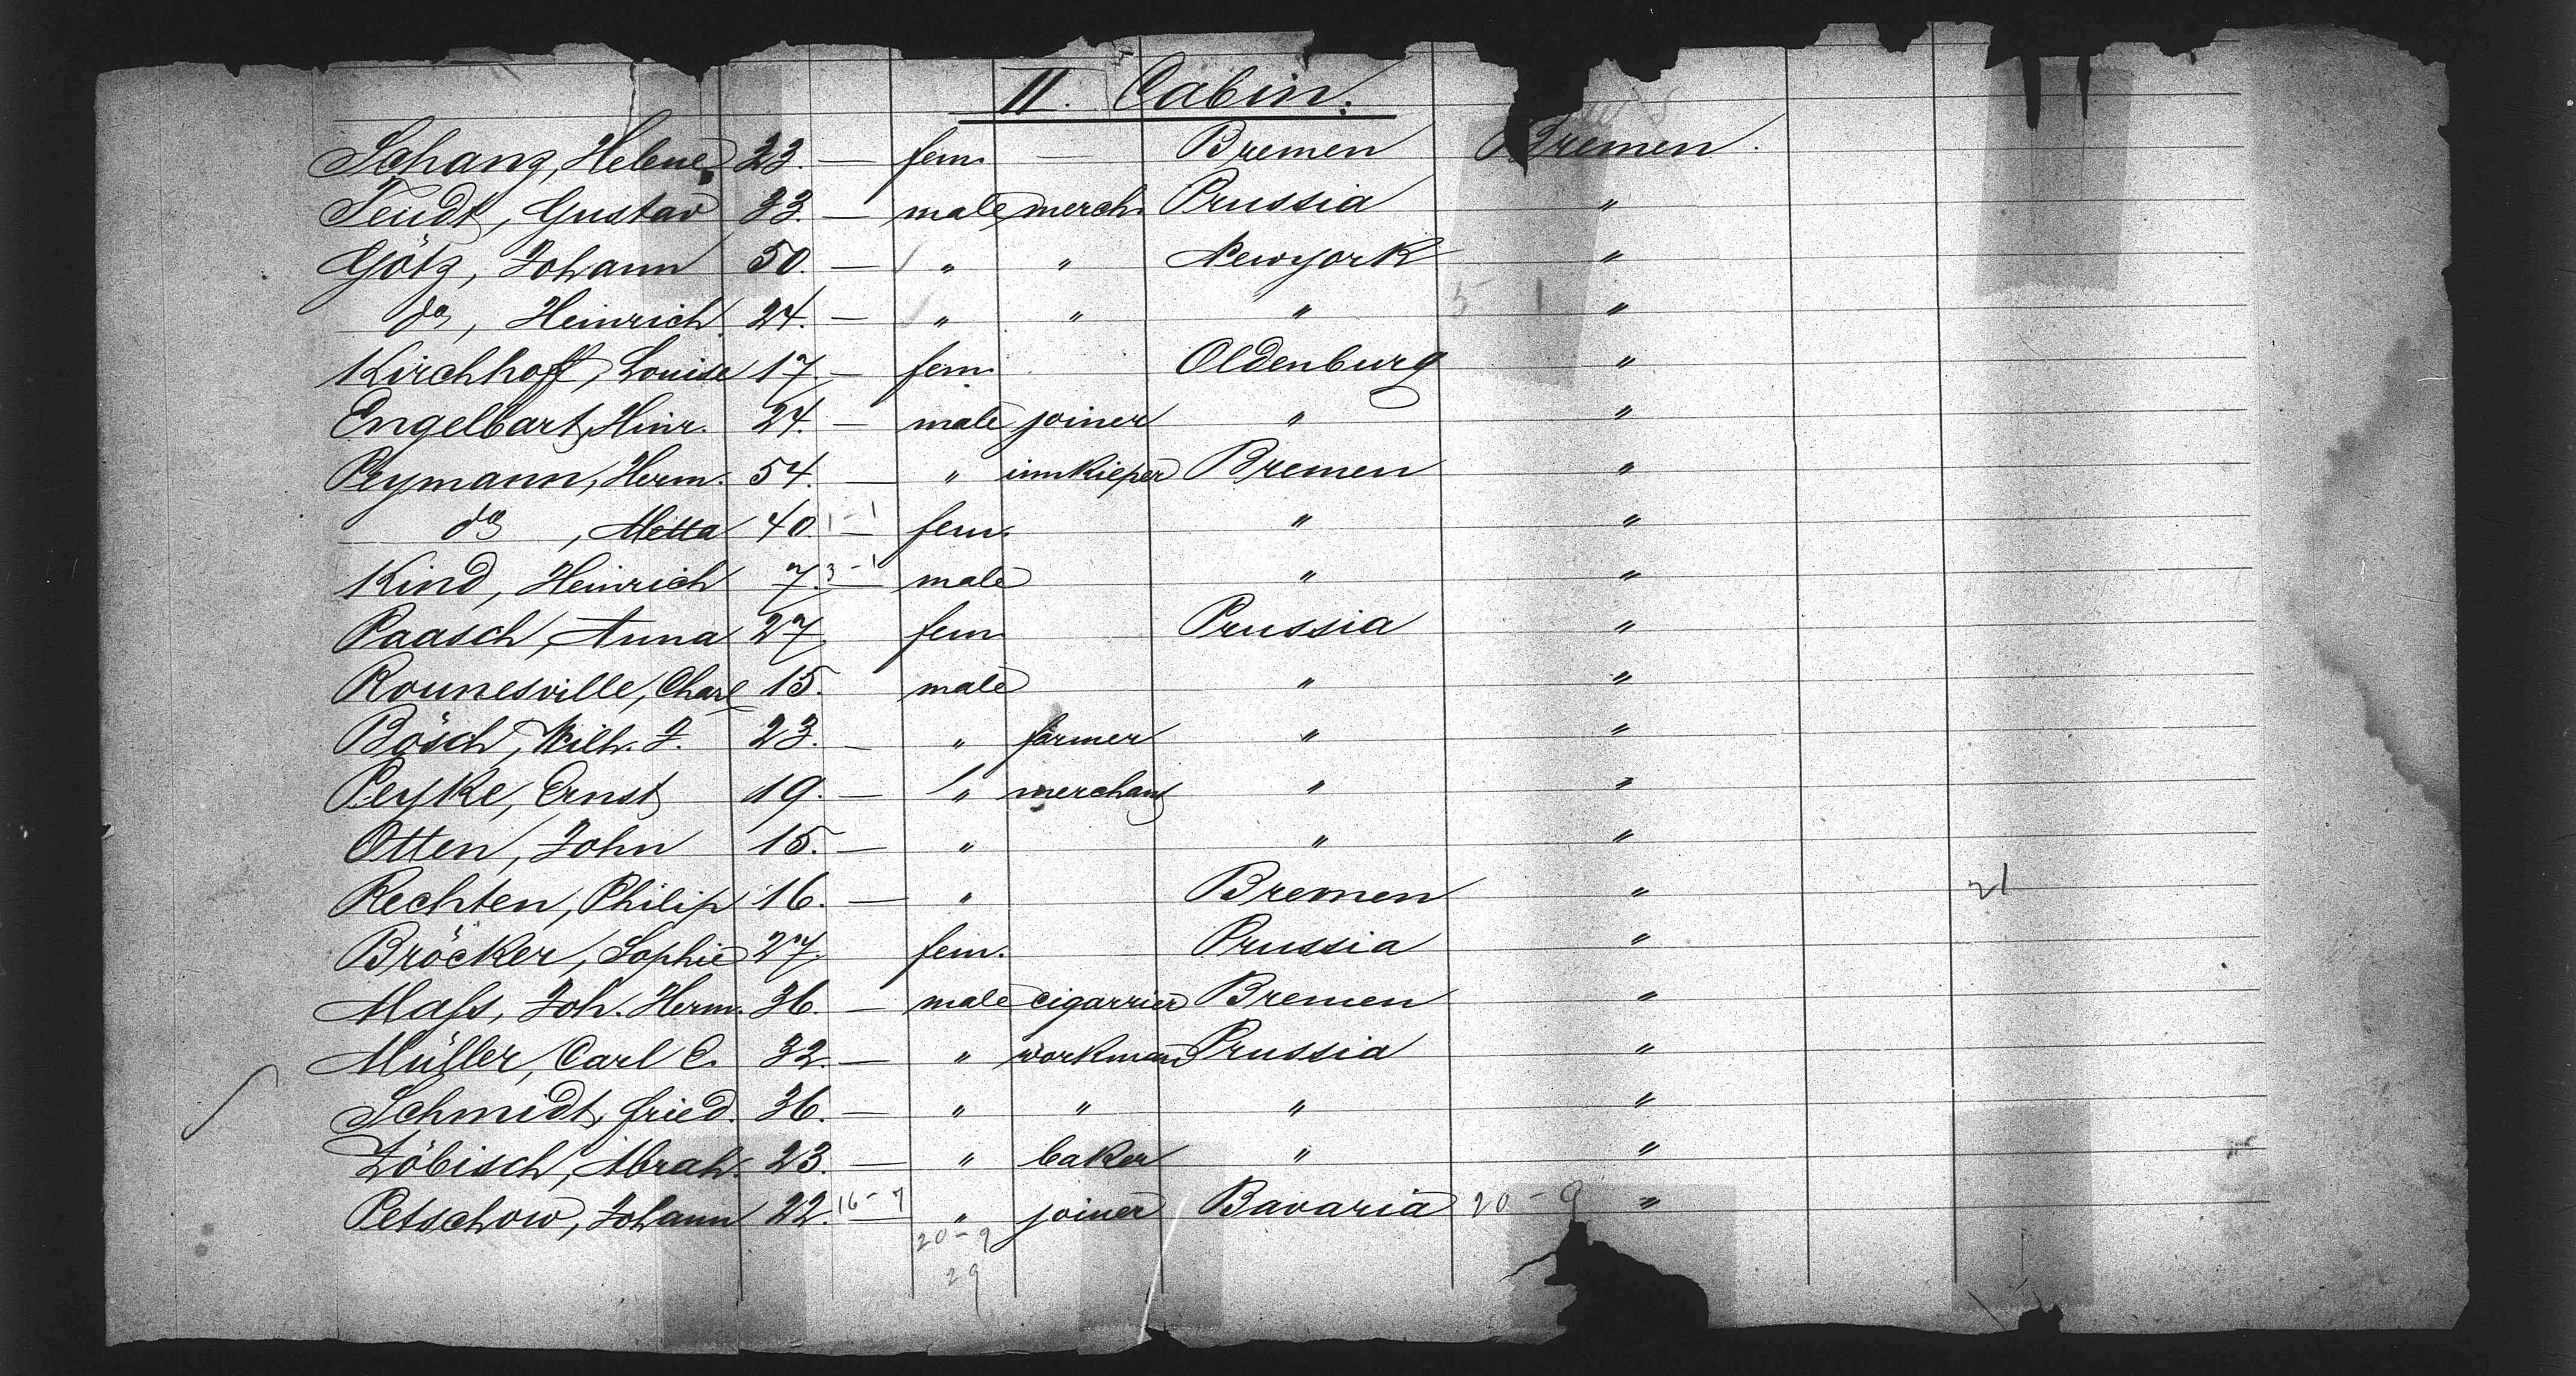 II. Cabin.
Schanz, Helene 23. — fem. — Bremen Bremen.
Teudt, Gustav 33. — male merch. Prussia "
Götz, Johann 50. — " " Newyork "
do, Heinrich 24. — " " " 5 1 "
Kirchhoff, Louise 17. — fem. Oldenburg "
Engelbart, Hinr. 24. — male joiner " "
Peymann, Herm. 54. — " innkieper Bremen "
do, Metta 40. 1 - 1 — fem. " "
Kind, Heinrich 7. 3 - 1 — male " "
Paasch, Anna 27. fem. Prussia "
Rounesville, Charl 15. male " "
Bösch, Wilh. J. 23. — " farmer " "
Peyke, Ernst 19. — " merchant " "
Otten, John 15. — " " "
Rechten, Philip 16. — " Bremen " 21
Bröcker, Sophie 27. fem. Prussia "
Maſs, Joh. Herm. 36. — male cigarrier Bremen "
Müller, Carl C. 32. — " workman Prussia "
Schmidt, Fried. 36. — " " " "
Zöbisch, Abrah. 23. — " baker " "
Petschow, Johann 22. 16 - 7 — " joiner Bavaria 20 - 9 "
20 - 9
29